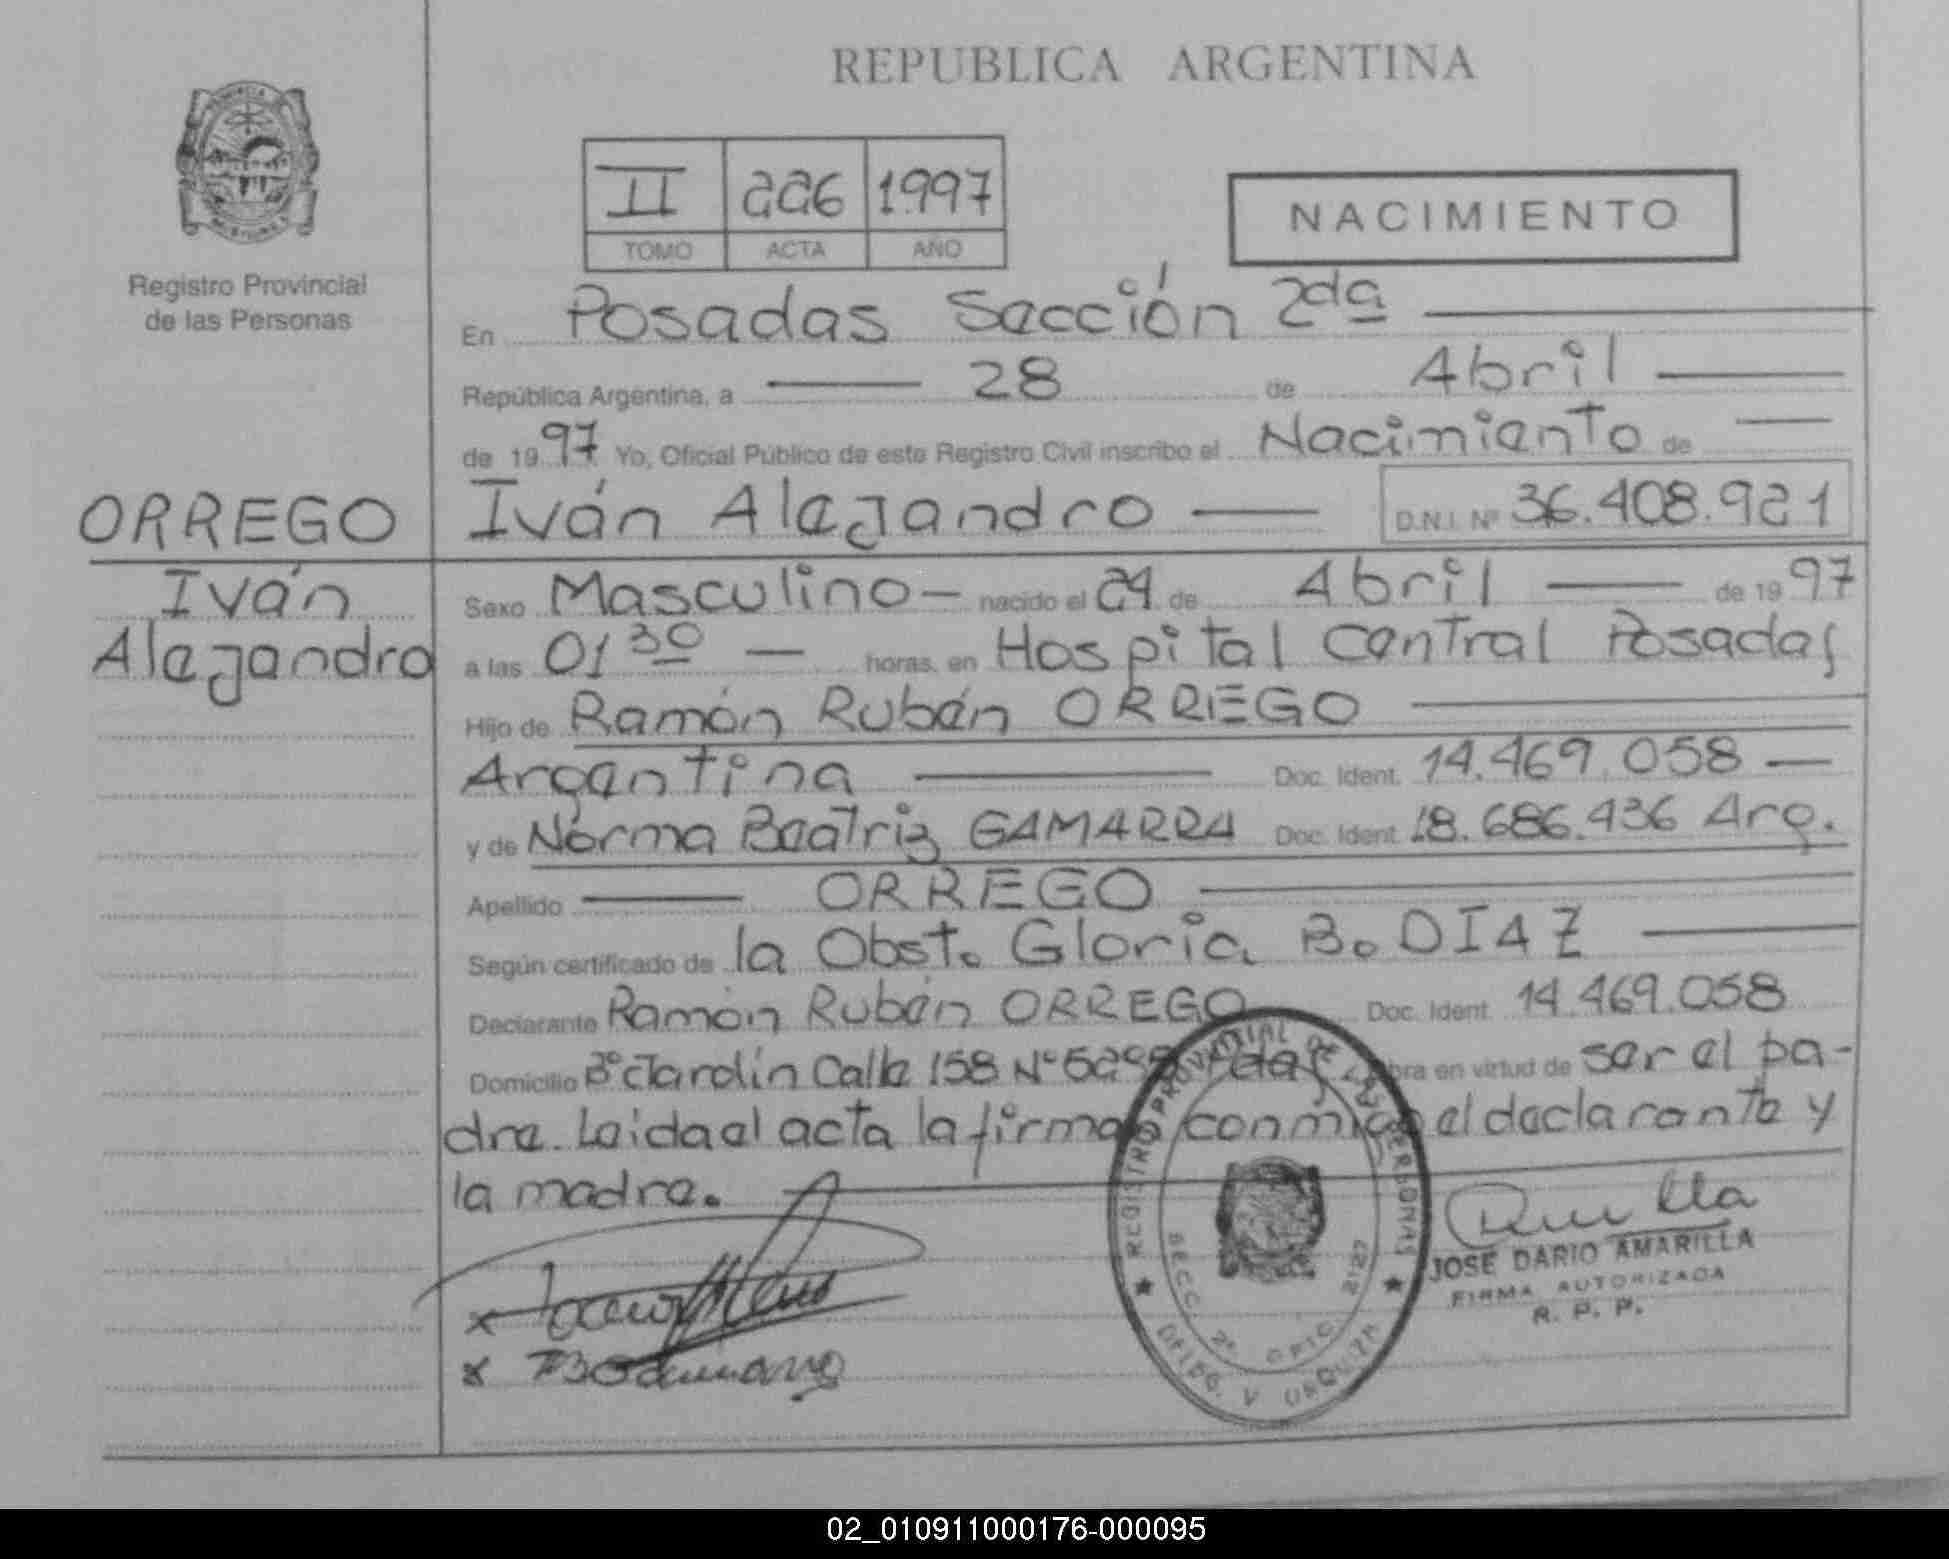 REPUBLICA ARGENTINA
II 226 1997
TOMO ACTA AÑO
NACIMIENTO
Registro Provincial
de las Personas
En Posadas Sección 2da
República Argentina, a 28 de Abril
de 1997 Yo, Oficial Público de este Registro Civil inscribo el Nacimiento de
ORREGO
Iván Alejandro D.N.I. Nº 36.408.921
Iván
Alejandro
Sexo Masculino - nacido el 24 de Abril de 1997
a las 01 30 horas, en Hospital Central Posadas
Hijo de Ramón Rubén ORREGO
Argentina Doc. Ident. 14.469.058
y de Norma Beatriz GAMARRA Doc. Ident. 18.686.436 Arg.
Apellido ORREGO
Según certificado de la Obst. Gloria B. DIAZ
Declarante Ramón Rubén ORREGO Doc. Ident. 14.469.058
Domicilio Bº Jardín Calle 158 Nº Pdas obra en virtud de ser el pa-
dre. Leida el acta la firman conmigo el declarante y
la madre.
REGISTRO PROVINCIAL DE LAS PERSONAS
SECC. 2ª OFIC. 2127
DELEG. V URQUIZA
JOSE DARIO AMARILLA
FIRMA AUTORIZADA
R. P. P.
02_010911000176-000095